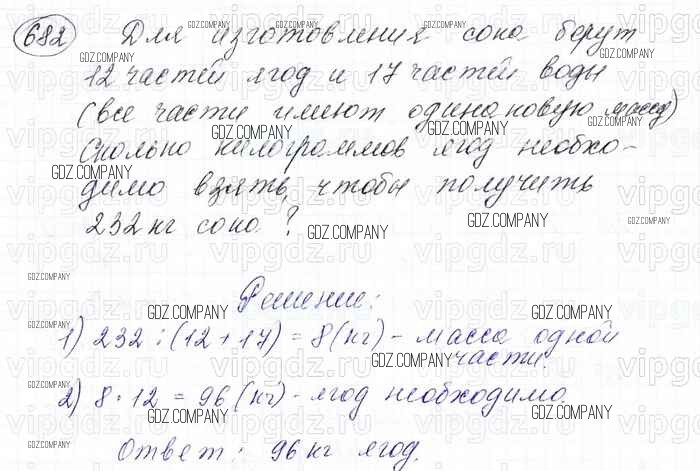 682 Для изготовления сока берут
12 частей ягод и 17 частей воды
(все части имеют одинаковую массу)
Сколько килограммов ягод необхо-
димо взять, чтобы получить
232 кг сока?
Решение:
1) 232 : (12 + 17) = 8 (кг) - масса одной
части.
2) 8 · 12 = 96 (кг) - ягод необходимо.
Ответ: 96 кг ягод.
GDZ.COMPANY
vipgdz.ru